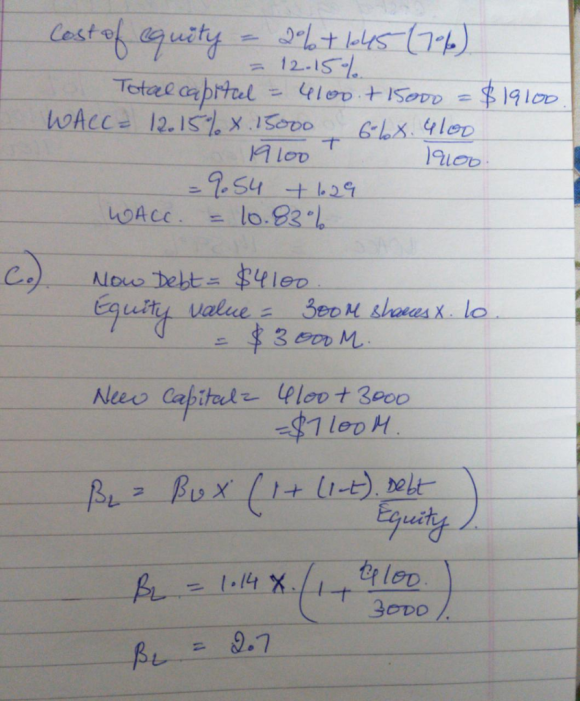 Cost of equity = 2% + 1.45 (7%)
= 12.15%
Total capital = 4100 + 15000 = $19100.
WACC = 12.15% x 15000/19100 + 6% x 4100/19100.
= 9.54 + 1.29
WACC. = 10.83%
C.) Now Debt = $4100.
Equity value = 300M shares x. 10.
= $3000M.
New Capital = 4100 + 3000
= $7100M.
βL = βU x (1 + (1-t). Debt/Equity).
βL = 1.14 x. (1 + 4100./3000).
βL = 2.7